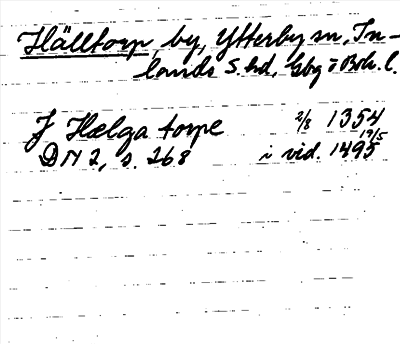 Hälltorp by, Ytterby sn, In-
lands S. hd, Gbg o Boh. l.
J Hælga torpe 2/8 1354
DN 2, s. 268 i vid. 19/5 1495